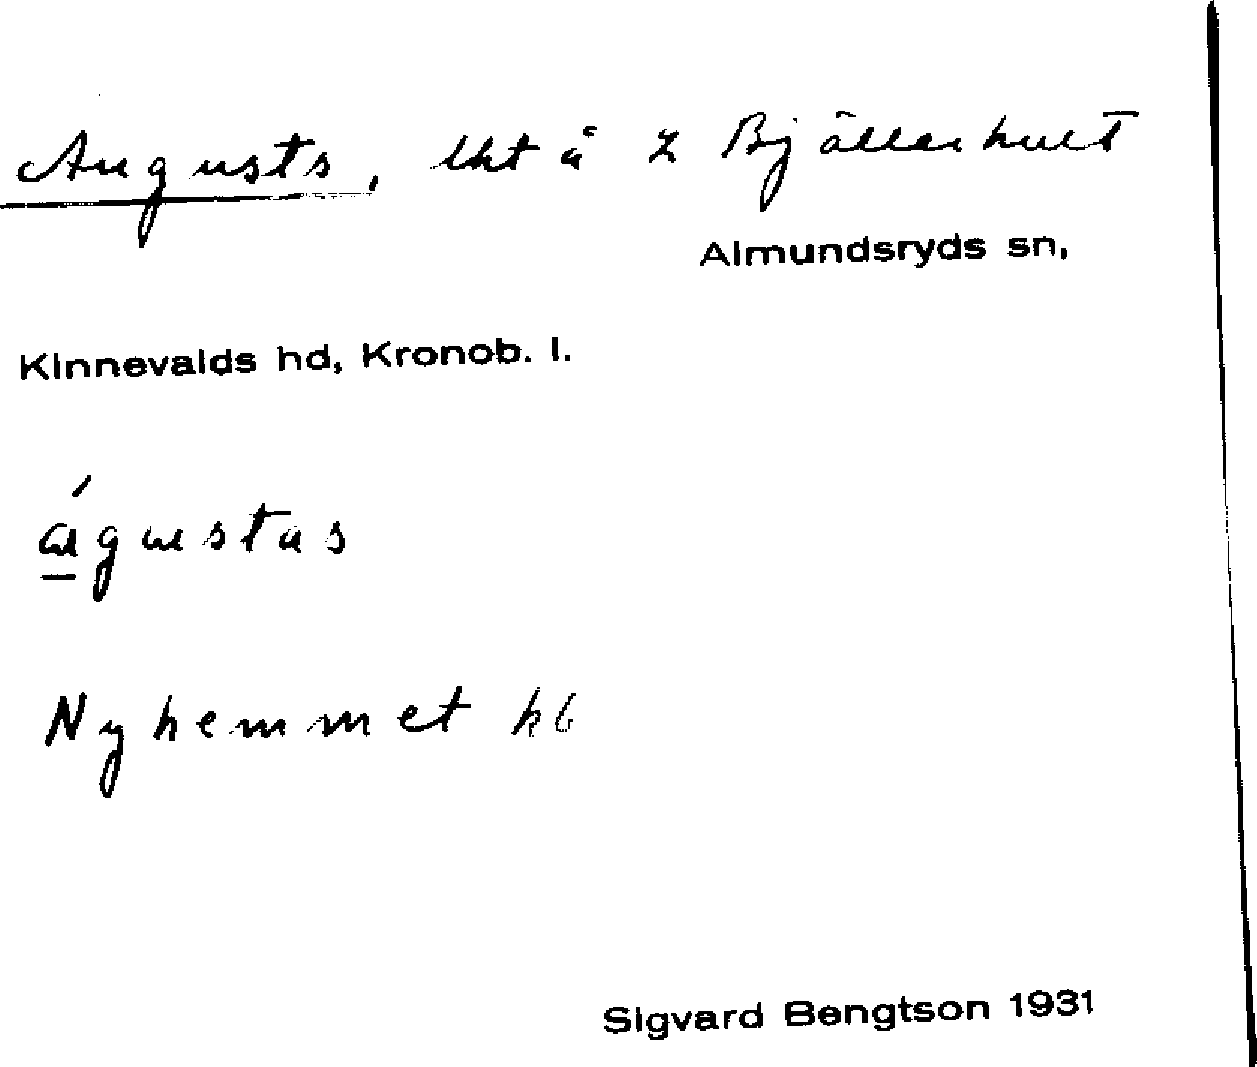 Augusts, lht å z Bjällerhult
Almundsryds sn,
Kinnevalds hd, Kronob. l.
águstas
Nyhemmet kb
Sigvard Bengtson 1931